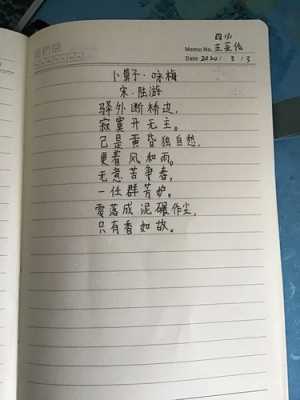 Memo No.
Date 2020 / 3 / 3
卜算子·咏梅
宋·陆游
驿外断桥边,
寂寞开无主。
已是黄昏独自愁,
更着风和雨。
无意苦争春,
一任群芳妒。
零落成泥碾作尘,
只有香如故。